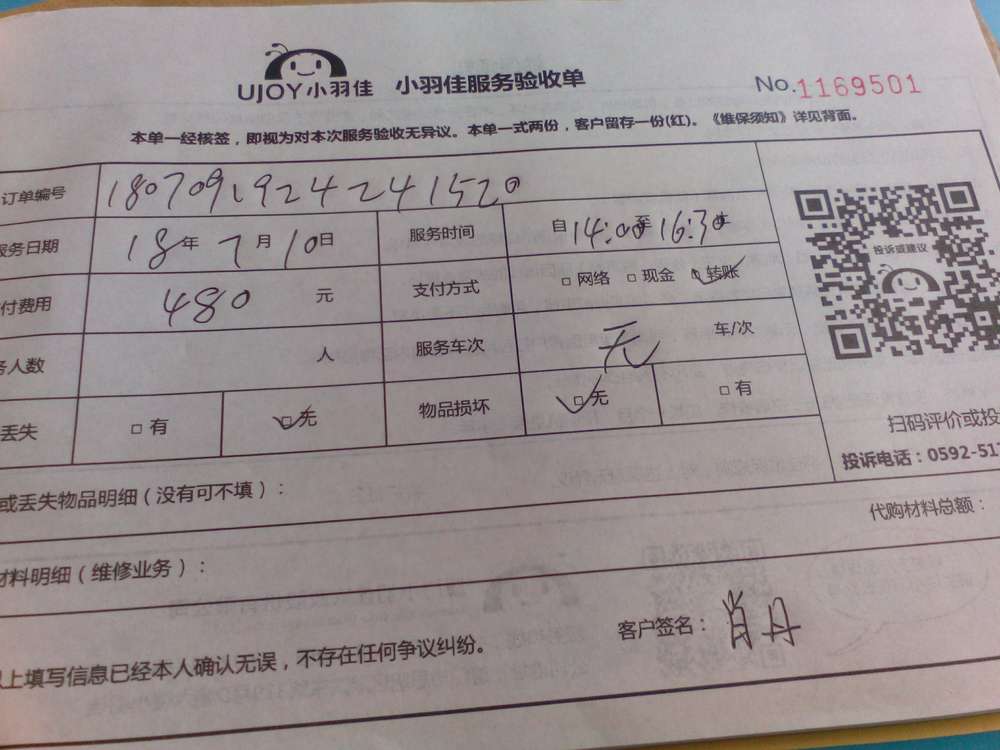 UJOY小羽佳 小羽佳服务验收单 No.1169501
本单一经核签，即视为对本次服务验收无异议。本单一式两份，客户留存一份(红)。《维保须知》详见背面。
订单编号 180709192424241520
服务日期 18年7月10日 服务时间 自14:00至16:30
付费用 480 元 支付方式 □网络 □现金 □转账
投诉或建议
务人数 人 服务车次 无 车/次
丢失 □有 □无 物品损坏 □无 □有
扫码评价或投
投诉电话：0592-517
或丢失物品明细（没有可不填）：
代购材料总额：
材料明细（维修业务）：
以上填写信息已经本人确认无误，不存在任何争议纠纷。 客户签名：肖丹